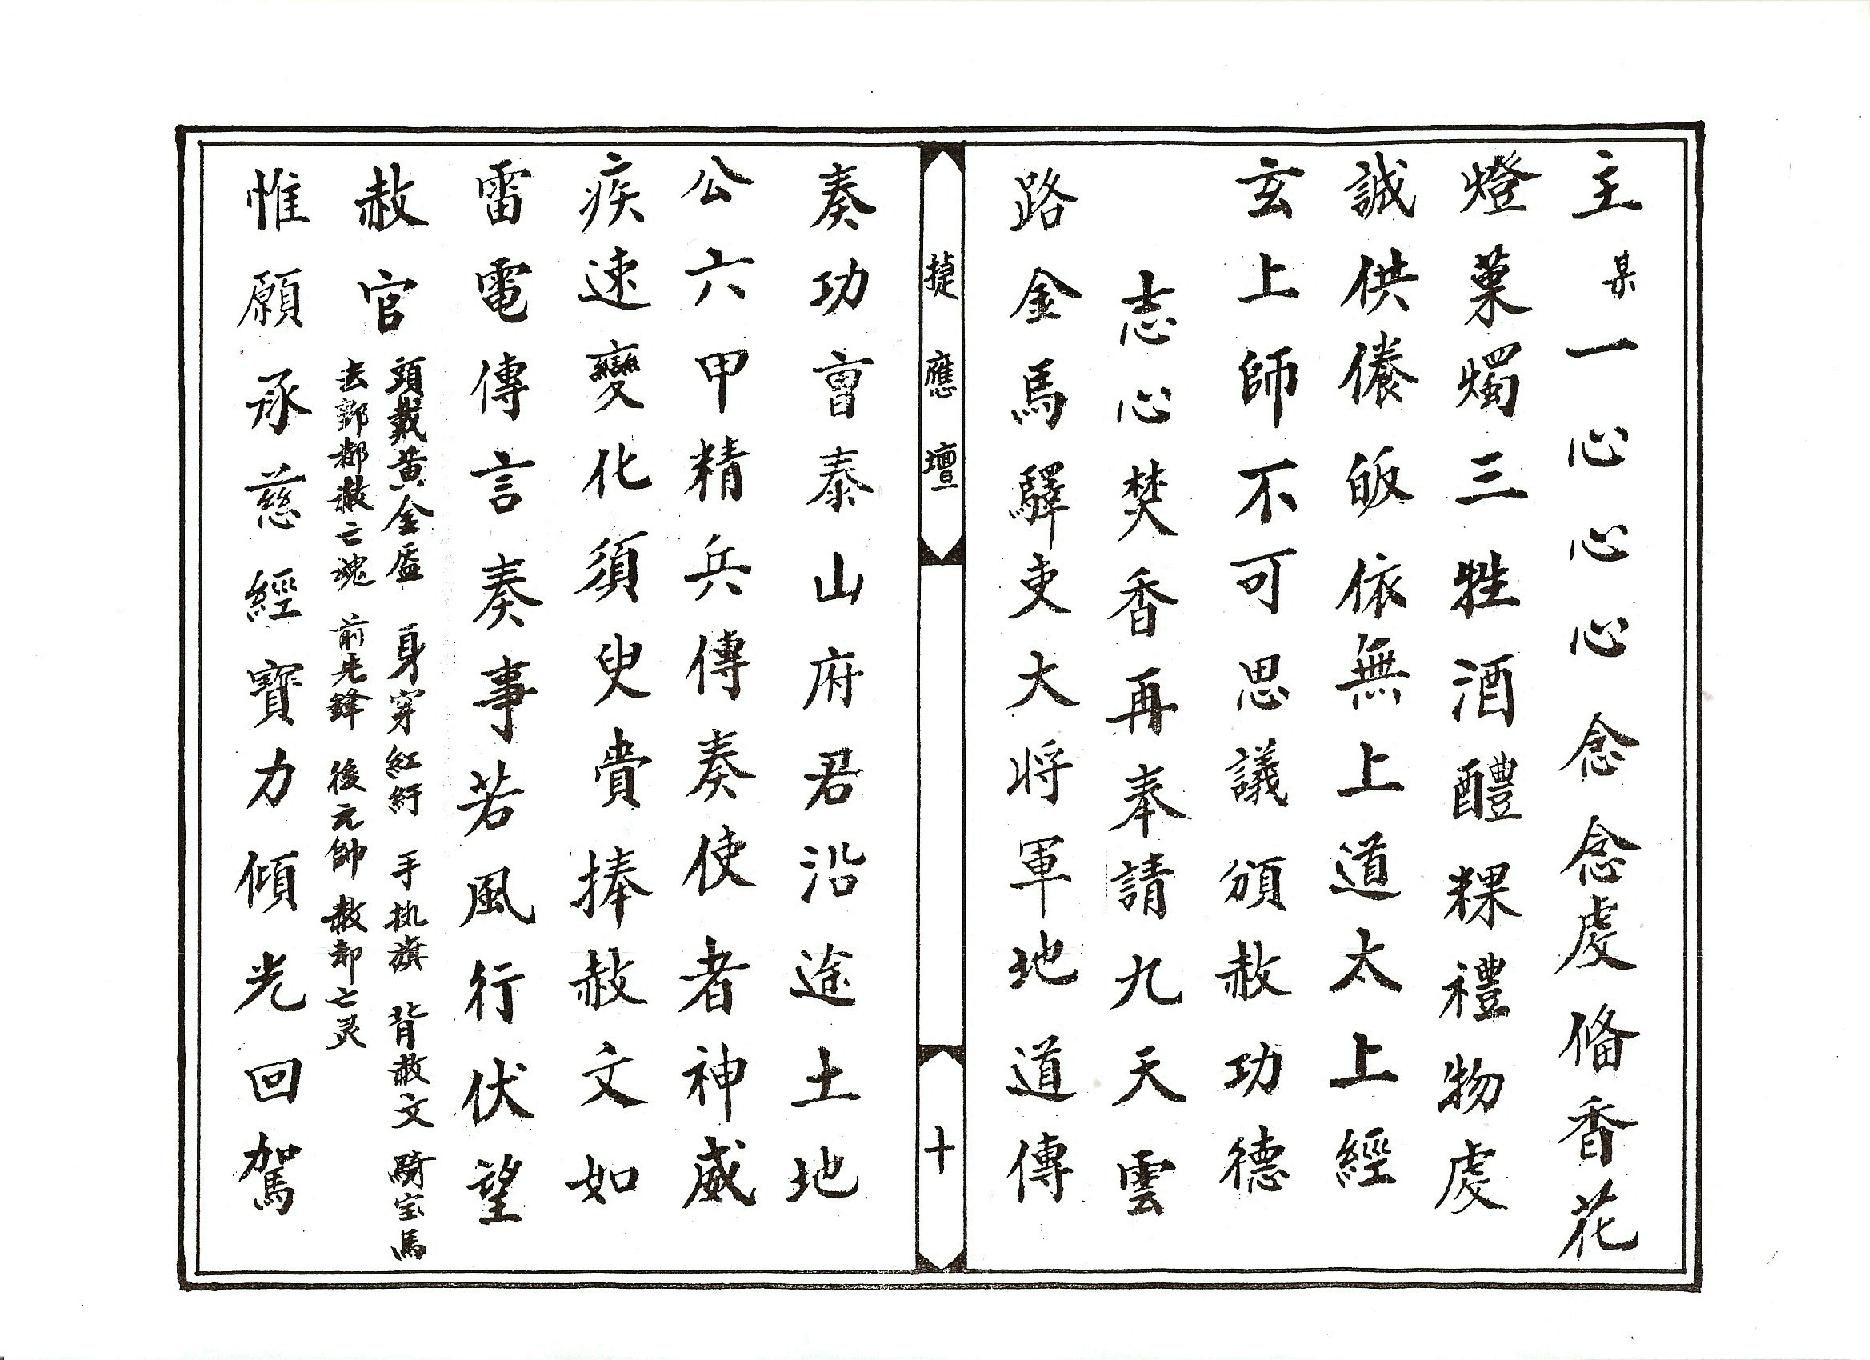 主某一心心心念念虔俻香花
燈菓燭三牲酒醴粿禮物虔
誠供儀皈依無上道太上經
玄上師不可思議頒赦功德
志心焚香再奉請九天雲
路金馬驛吏大將軍地道傳
捷應壇
十
奏功曺泰山府君沿途土地
公六甲精兵傳奏使者神威
疾速變化須臾賫捧赦文如
雷電傳言奏事若風行伏望
赦官
頭戴黄金盔 身穿紅紆 手执旗 背赦文 騎宝馬
去酆都救亡魂 前先鋒 後元帥 赦却亡灵
惟願承慈經寶力傾光回駕